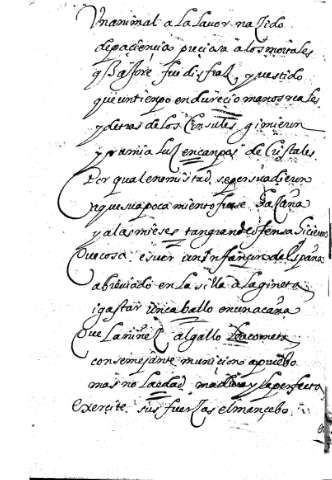 Un animal a la lauor naçido
de paçiençia preçiosa a los mortales
q̃ a Joue fue disfraz, y vestido
que un tiempo endureçio manos reales
y detras de los Consules gimieron
y rumia luz en canpos de Cristales.
Por qual enemistad se persuadieron
a que su apocamiento fuese haçaña
y a las mieses tan grande ofensa hiçieron
Que cosa es uer un infançon de España
abreuiado en la silla a la gineta
i gastar un caballo en una caña
Que la niñez al gallo le acometa
con semejante muniçion apruebo
mas no la edad madura y la perfecta
Exerçite sus fuerças el mançebo